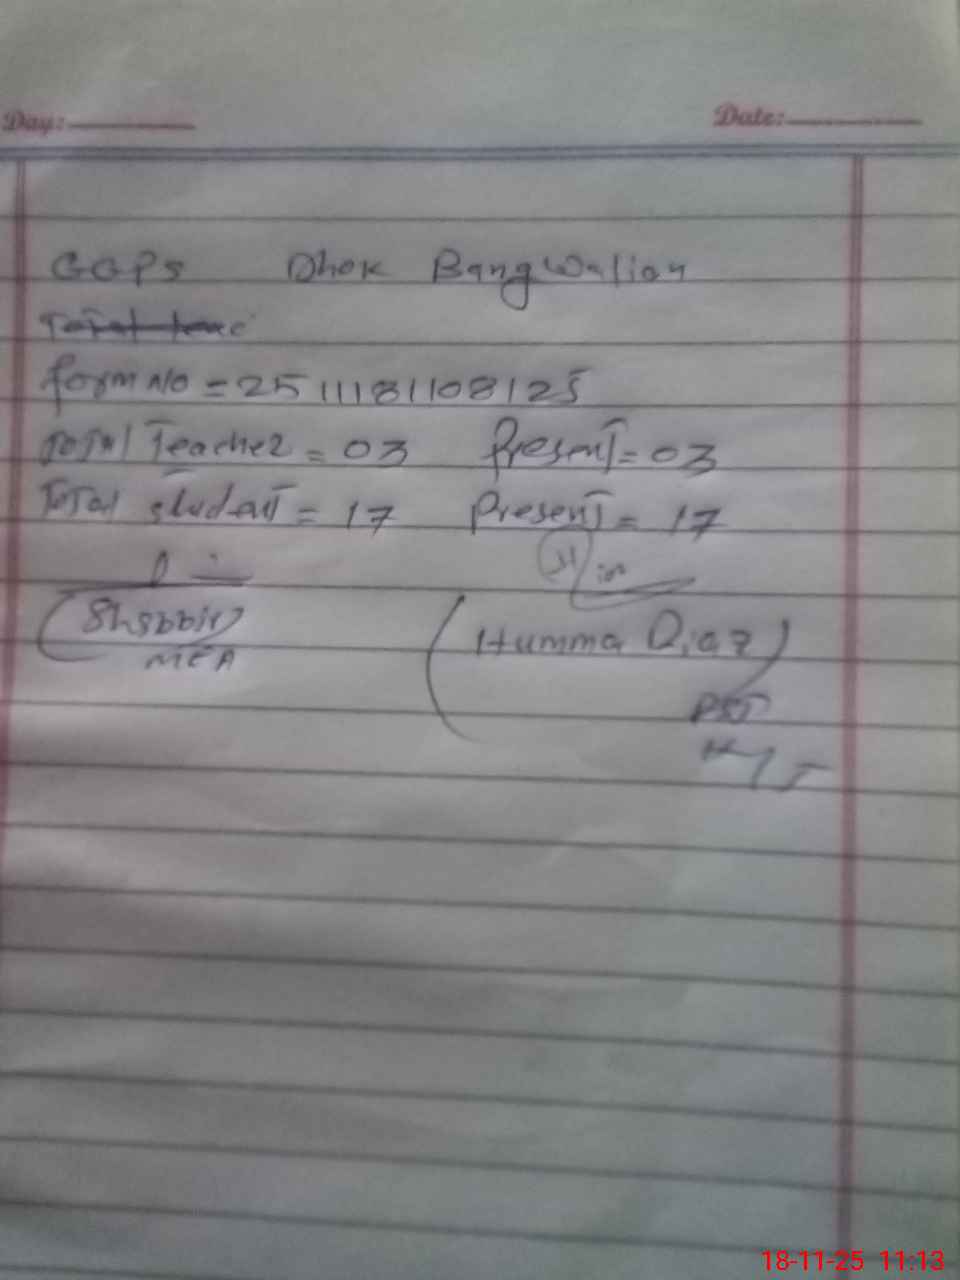 Day: Date:
GGPS Dhok Bangwalian
form No = 2511181108125
Total Teacher = 03 Present = 03
Total student = 17 Present = 17
Shabbir
MEA
Humma Qiaz
PST
18-11-25 11:13